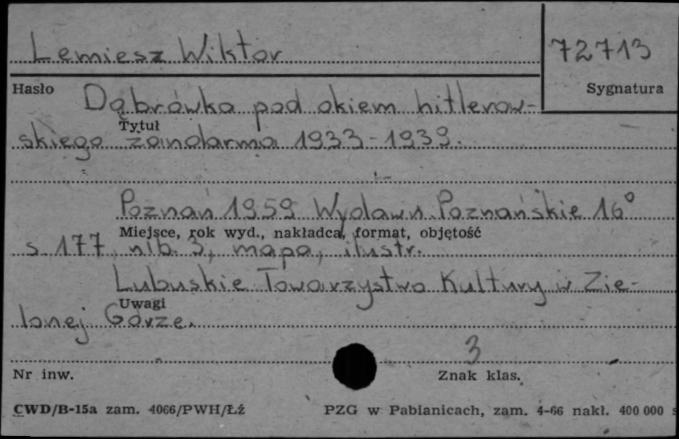 Lemiesz Wiktor
72713
Hasło
Sygnatura
Dąbrówka pod okiem hitlerow-
Tytuł
skiego żandarma 1933-1939.
Poznań 1959 Wydawn. Poznańskie 16°
Miejsce, rok wyd., nakładca, format, objętość
s 177, nlb. 3, mapa, ilustr.
Lubuskie Towarzystwo Kultury w Zie-
Uwagi
lonej Górze.
3
Nr inw.
Znak klas.
CWD/B-15a zam. 4066/PWH/Łź
PZG w Pabianicach, zam. 4-66 nakł. 400 000 s